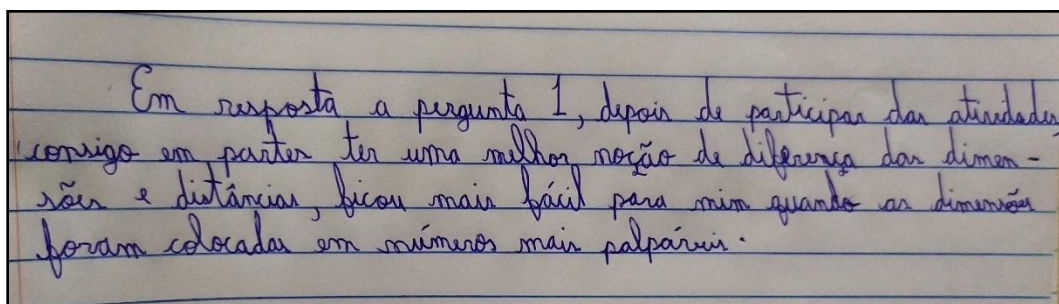 Em resposta a pergunta 1, depois de participar das atividades
consigo em partes ter uma melhor noção de diferença das dimen-
sões e distâncias, ficou mais fácil para mim quando as dimensões
foram colocadas em números mais palpáveis.